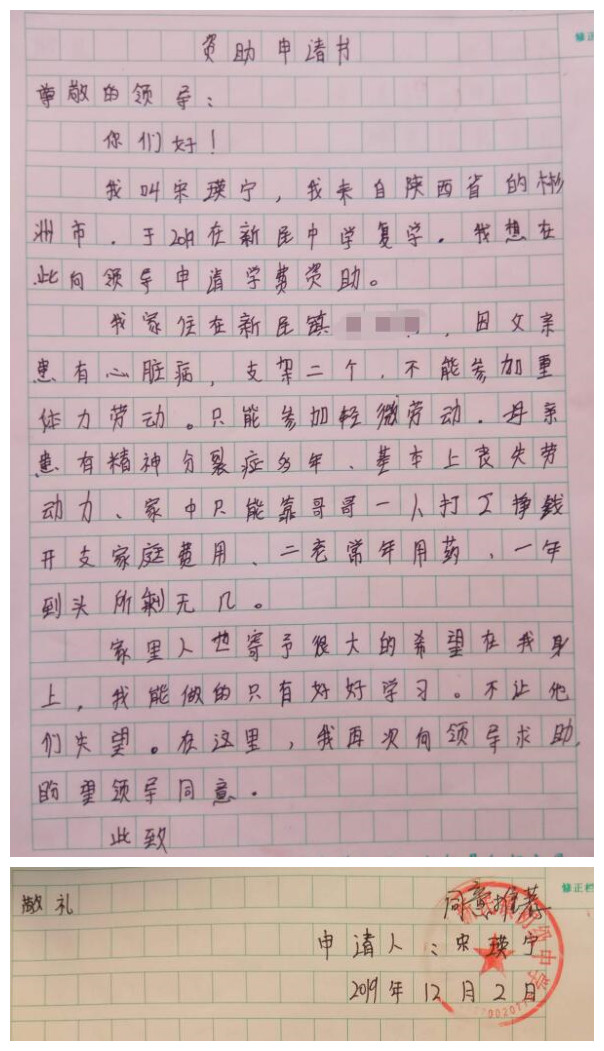 修正
资助申请书
尊敬的领导：
你们好！
我叫宋瑛宁，我来自陕西省的彬
洲市．于20月在新民中学复学．我想在
此向领导申请学费资助。
我家住在新民镇，因父亲
患有心脏病，支架二个．不能参加重
体力劳动。只能参加轻微劳动．母亲
患有精神分裂症多年、基本上丧失劳
动力、家中只能靠哥哥一人打工挣钱
开支家庭费用、二老常年用药、一年
到头所剩无几。
家里人也寄予很大的希望在我身
上，我能做的只有好好学习。不让他
们失望。在这里，我再次向领导求助，
盼望领导同意．
此致
修正栏
敬礼
同意推荐
初级中学
申请人：宋瑛宁
2019年12月2日